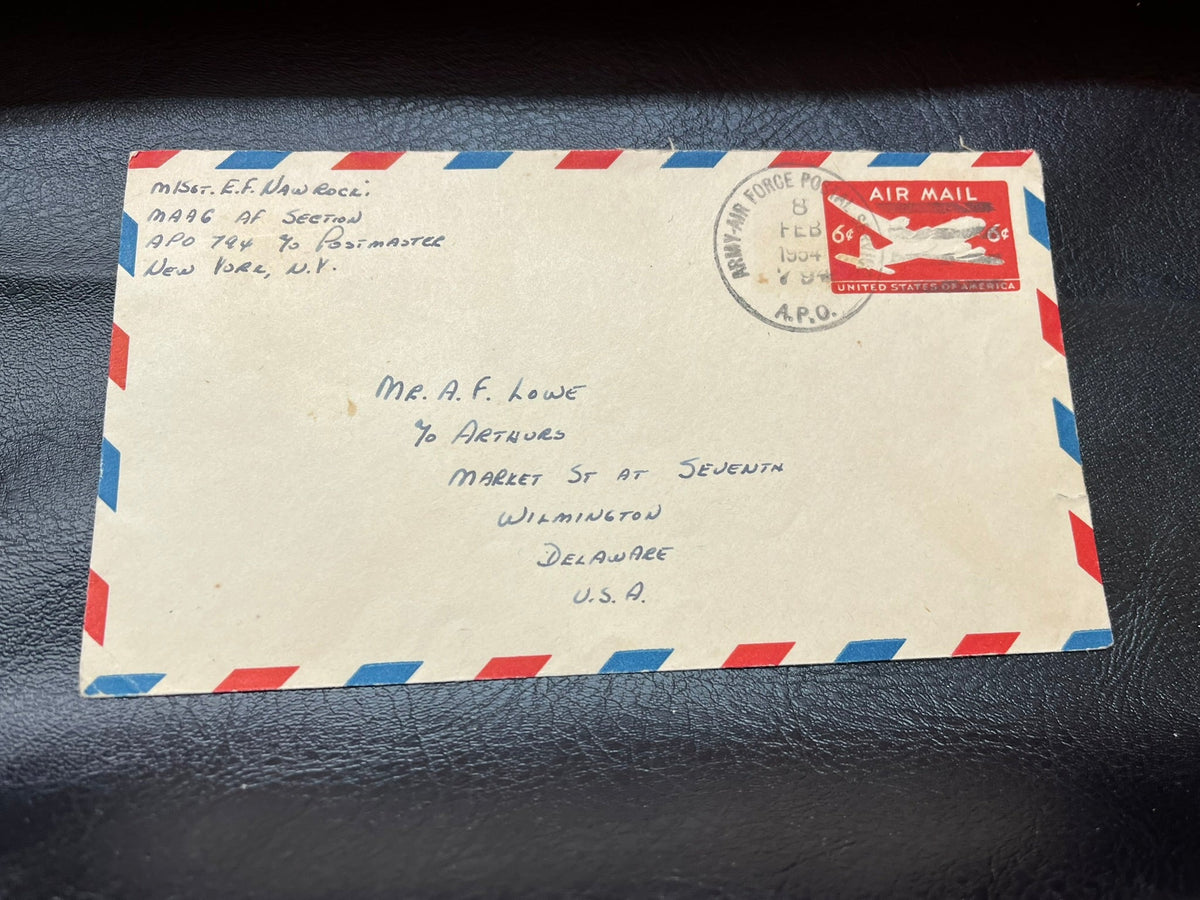 M/SGT. E.F. NAWROCKI
MAAG AF SECTION
APO 794 c/o POSTMASTER
NEW YORK, N.Y.
ARMY-AIR FORCE POSTAL
8
FEB
1954
794
A.P.O.
AIR MAIL
6¢ 6¢
UNITED STATES OF AMERICA
MR. A. F. LOWE
c/o ARTHURS
MARKET ST AT SEVENTH
WILMINGTON
DELAWARE
U.S.A.